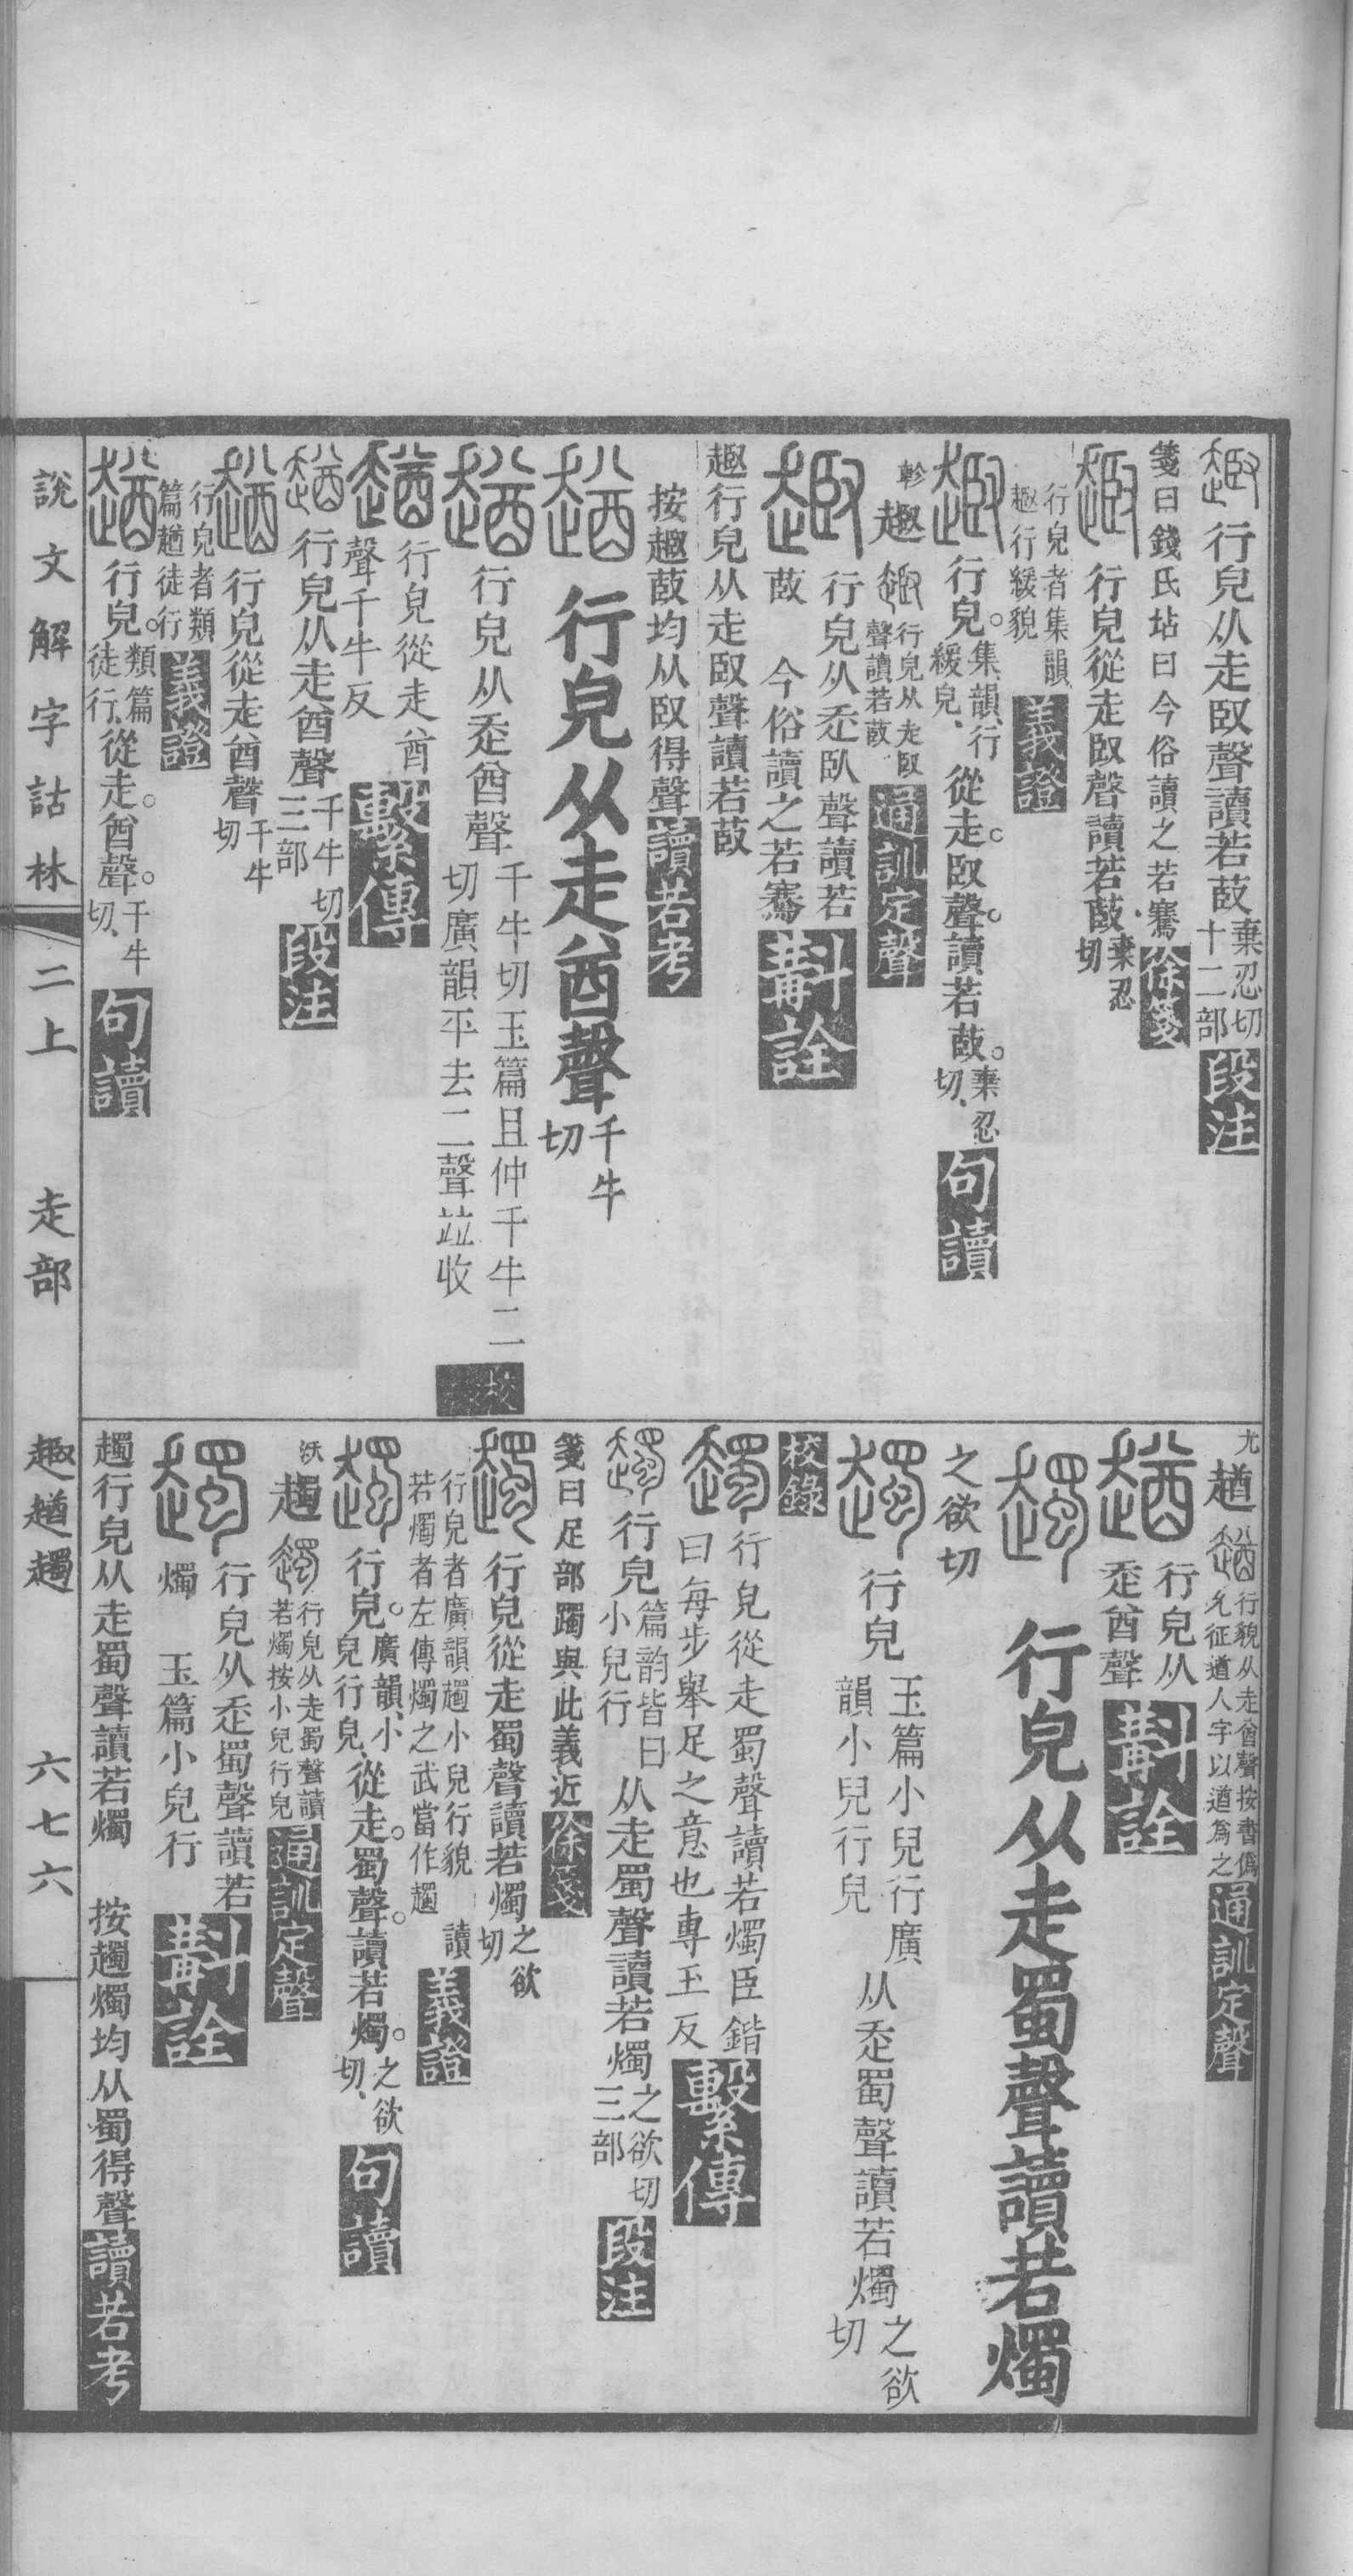 行皃从走臤聲讀若菣棄忍切十二部段注
箋曰錢氏坫曰今俗讀之若騫徐箋
行皃從走臤聲讀若菣棄忍切
行皃者集韻趣行緩貌義證
行皃。集韻、行緩皃、從走。臤聲。讀若菣。棄忍切、句讀
行皃从走臤聲讀若菣通訓定聲
行皃从辵臥聲讀若菣　今俗讀之若騫斠詮
行皃从走臤聲讀若菣
均从臤得聲讀若考
行皃从走酋聲千牛切
行皃从辵酋聲千牛切玉篇且仲千牛二切廣韻平去二聲竝收校錄
行皃從走酋聲千牛反繫傳
行皃从走酋聲千牛切三部段注
行皃從走酋聲千牛切
行皃者類篇趥徒行義證
行皃。類篇徒行、從走。酋聲。千牛切、句讀
尤趥行貌从走酋聲按書僞允征遒人字以遒爲之通訓定聲
行皃从辵酋聲斠詮
行皃从走蜀聲讀若燭
之欲切
行皃玉篇小兒行廣韻小兒行皃从辵蜀聲讀若燭之欲切
校錄
行皃從走蜀聲讀若燭臣鍇曰每步舉足之意也專玉反繫傳
行皃篇韵皆曰小兒行从走蜀聲讀若燭之欲切三部段注
箋曰足部躅與此義近徐箋
行皃從走蜀聲讀若燭之欲切
行皃者廣韻趨小兒行貌　讀若燭者左傳燭之武當作趨義證
行皃。廣韻、小兒行皃、從走。蜀聲。讀若燭。之欲切、句讀
沃趨行皃从走蜀聲讀若燭按小兒行皃通訓定聲
行皃从辵蜀聲讀若燭　玉篇小兒行斠詮
行皃从走蜀聲讀若燭　按燭均从蜀得聲讀若考
說文解字詁林　二上　走部　六七六